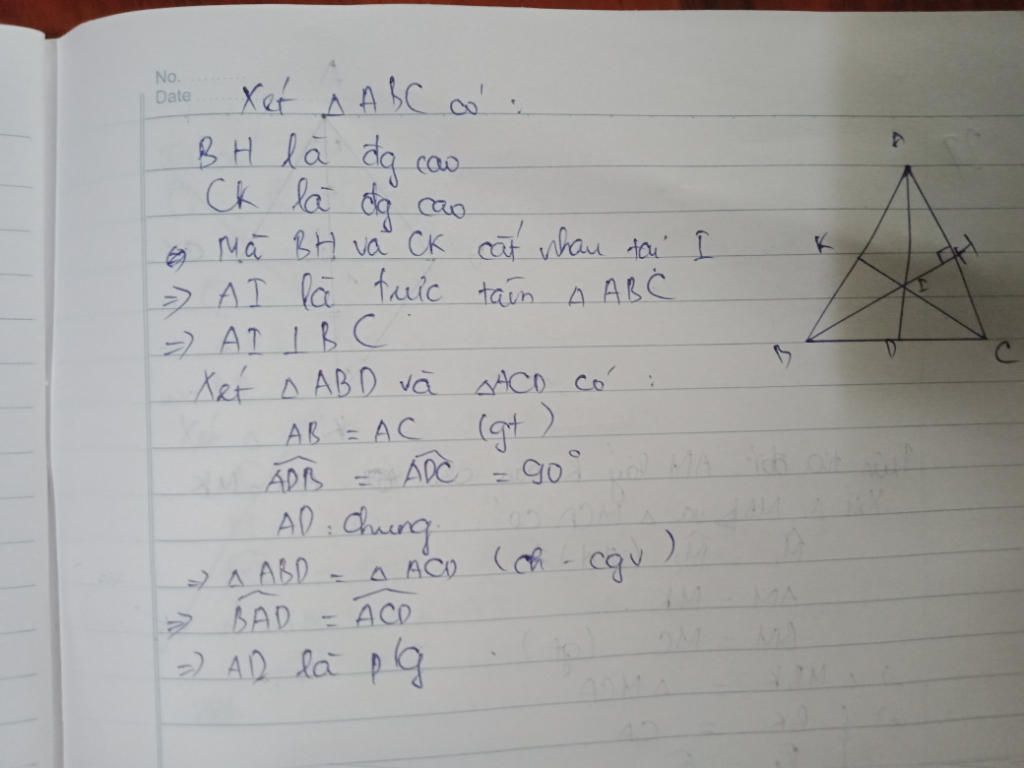 No. ............
Date ............
Xét △ABC có :
BH là đg cao
CK là đg cao
⇔ Mà BH và CK cắt nhau tại I
⇒ AI là trực tâm △ABC
⇒ AI ⊥ BC
Xét △ABD và △ACD có :
AB = AC (gt)
\widehat{ADB} = \widehat{ADC} = 90°
AD : Chung
⇒ △ABD = △ACD (ch - cgv)
⇒ \widehat{BAD} = \widehat{ACD}
⇒ AD là p/g
A
K
H
I
B
D
C